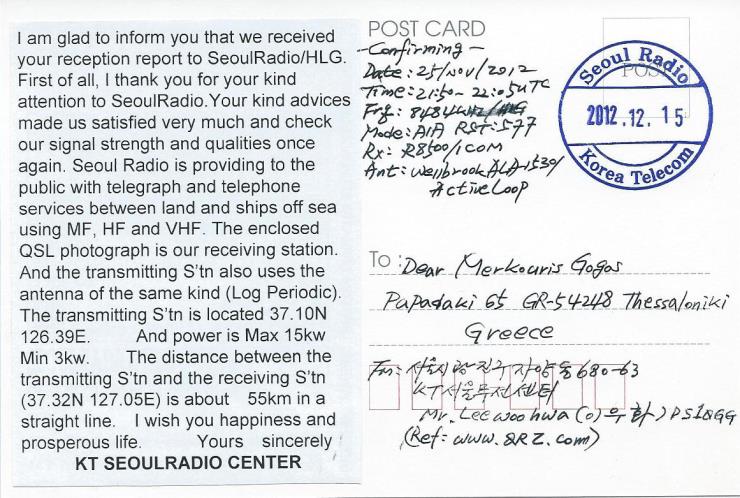 I am glad to inform you that we received
your reception report to SeoulRadio/HLG.
First of all, I thank you for your kind
attention to SeoulRadio.Your kind advices
made us satisfied very much and check
our signal strength and qualities once
again. Seoul Radio is providing to the
public with telegraph and telephone
services between land and ships off sea
using MF, HF and VHF. The enclosed
QSL photograph is our receiving station.
And the transmitting S'tn also uses the
antenna of the same kind (Log Periodic).
The transmitting S'tn is located 37.10N
126.39E. And power is Max 15kw
Min 3kw. The distance between the
transmitting S'tn and the receiving S'tn
(37.32N 127.05E) is about 55km in a
straight line. I wish you happiness and
prosperous life. Yours sincerely
KT SEOULRADIO CENTER
POST CARD
-Confirming-
Date: 25/Nov/2012
Time: 21:50~22:05UTC
Frq: 8484kHz/HLG
Mode: A1A RST: 577
Rx: R8500/ICOM
Ant: Wellbrook ALA-1530/
Active Loop
POST
Seoul Radio
2012.12.15
Korea Telecom
To: Dear Merkouris Gogos
Papadaki 65 GR-54248 Thessaloniki
Greece
Fm: 서울 광진구 자양동 680-63
KT서울무선센터
Mr. Lee woo hwa (이우화) DS1QGG
(Ref: www.QRZ.com)